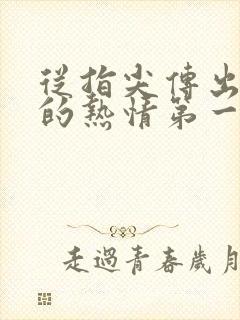 從指尖傳出
的熱情第一
走過青春歲月